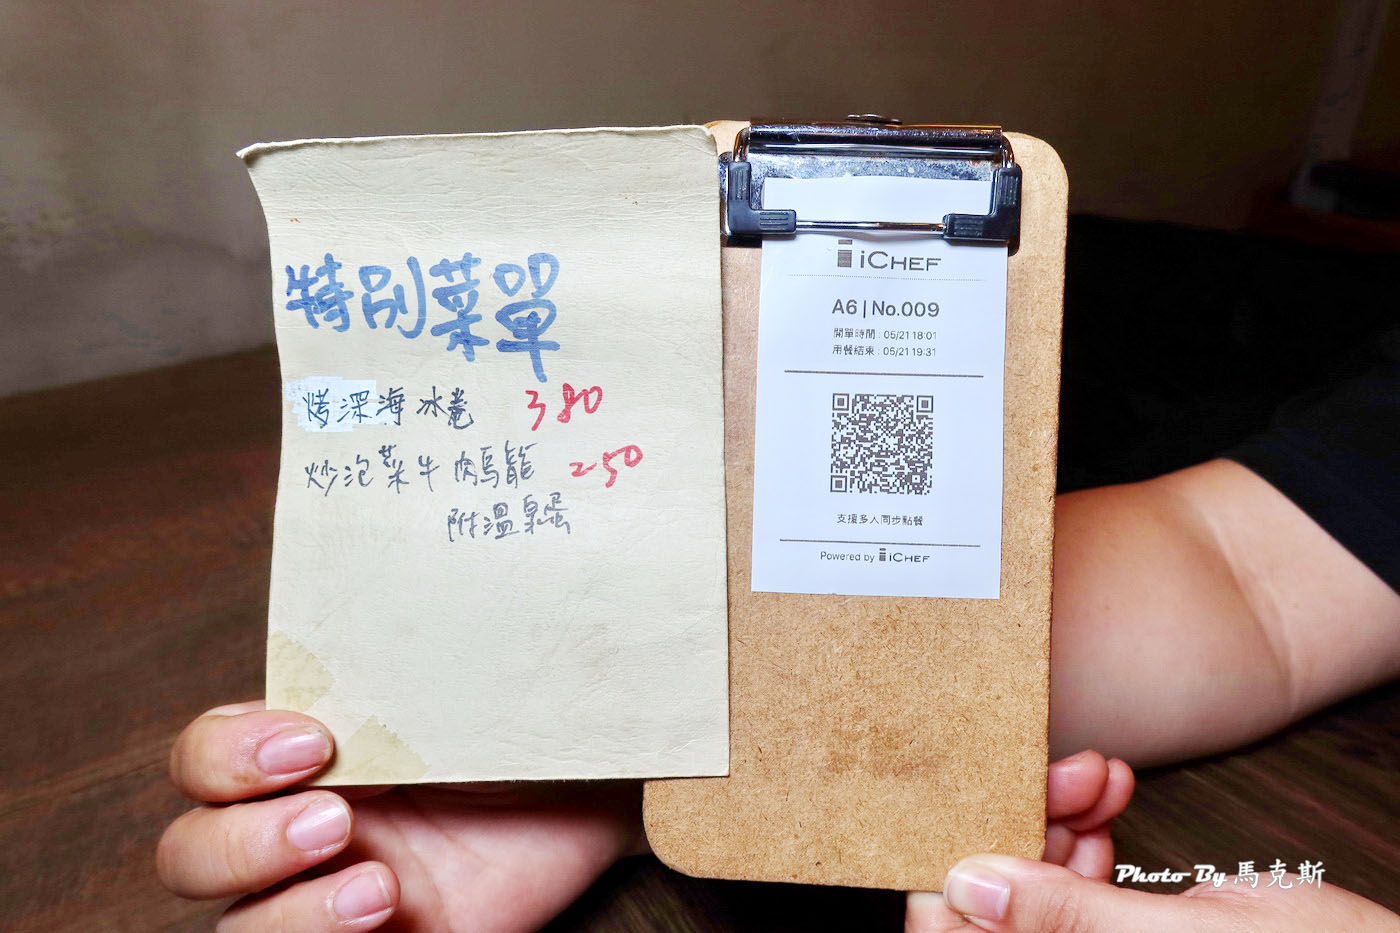 特別菜單
烤深海冰卷 380
炒泡菜牛肉烏龍 250
附溫泉蛋
iCHEF
A6 | No.009
開單時間 : 05/21 18:01
用餐結束 : 05/21 19:31
支援多人同步點餐
Powered by iCHEF
Photo By 馬克斯